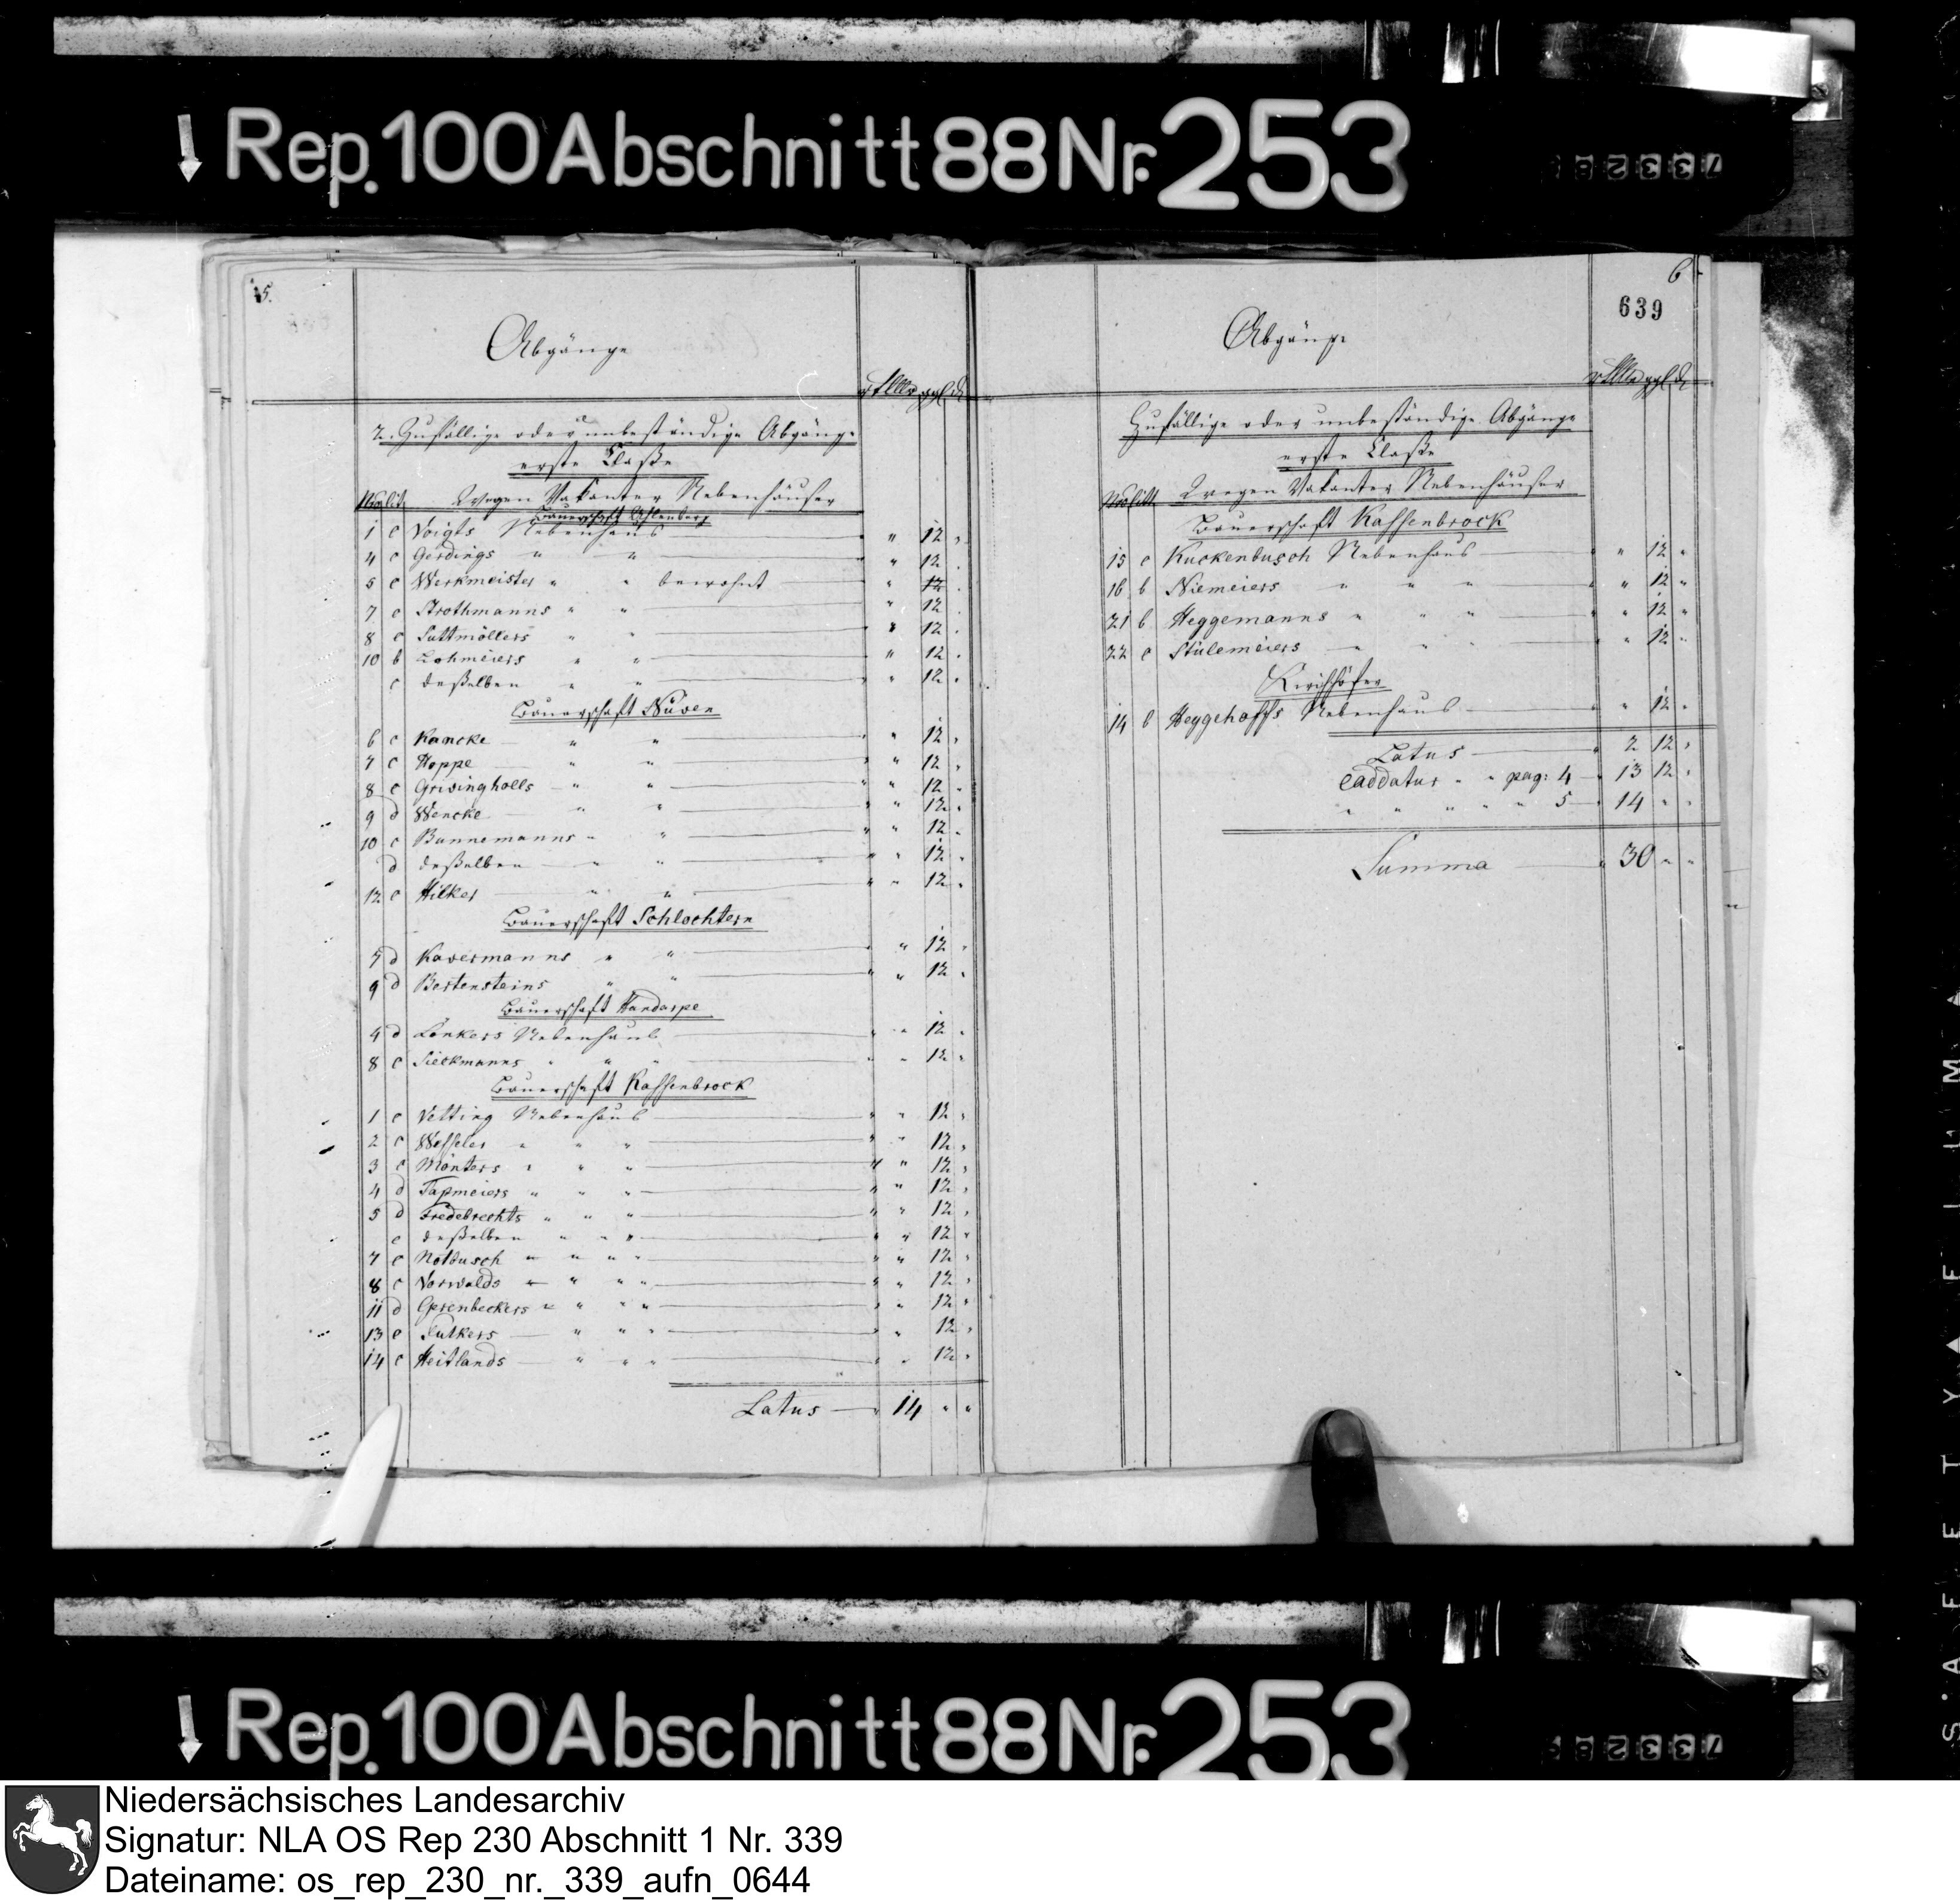 Rep. 100 Abschnitt 88 Nr. 253
5.
Abgänge
rthlr ggl d
2. Zufällige oder unbeständige Abgänge
erste Claße
No lit. Wegen Vakanter Nebenhäuser
Bauerschaft
1 c Voigts Nebenhaus — " 12 "
4 c Gerdings " " — " 12 "
5 c Werkmeister " " bewohnt — " 12 "
7 c Strothmanns " " — " 12 "
8 c Suttmöllers " " — " 12 "
10 b Lohmeiers " " — " 12 "
c deßelben " " — " 12 "
Bauerschaft Nüven
6 c Kancke " " — " " 12 "
7 c Hoppe " " — " " 12 "
8 c Grisingholls " " — " " 12 "
9 d Wencke " " — " " 12 "
10 c Bunnemanns " " — " " 12 "
d deßelben " " — " " 12 "
12 c Hilker " " — " " 12 "
Bauerschaft Schlochtern
5 d Kavermanns " " — " " 12 "
9 d Bertensteins " " — " " 12 "
Bauerschaft Handarpe
4 d Lönkers Nebenhaus — " " 12 "
8 c Sieckmanns " " " — " " 12 "
Bauerschaft Kassenbrock
1 c Vetting Nebenhaus — " " 12 "
2 c Wesseler " " " — " " 12 "
3 c Mönters " " " — " " 12 "
4 d Tapmeiers " " " — " " 12 "
5 d Fredebrechts " " " — " " 12 "
e deßelben " " " — " " 12 "
7 c Notbusch " " " " — " " 12 "
8 c Vorwalds " " " " — " " 12 "
11 d Gersenbeckers " " " " — " " 12 "
13 e " " " — " " 12 "
14 c Heitlands " " " — " " 12 "
Latus — " 14 " "
6
639
Abgänge
rthlr ggl d
Zufällige oder unbeständige Abgänge
erste Claße
No litt Wegen Vakanter Nebenhäuser
Bauerschaft Kassenbrock
15 c Kuckenbusch Nebenhaus — " 12 "
16 b Niemeiers " " " — " " 12 "
21 b Heggemanns " " " — " " 12 "
22 c Stülemeiers " " " — " " 12 "
Kirchhöfer
14 b Heggehoffs Nebenhaus — " " 12 "
Latus — " 2 12 "
Caddatur " " pag: 4 — " 13 12 "
" " " " " 5 — 14 " "
Summa — " 30 " "
Rep. 100 Abschnitt 88 Nr. 253
Niedersächsisches Landesarchiv
Signatur: NLA OS Rep 230 Abschnitt 1 Nr. 339
Dateiname: os_rep_230_nr._339_aufn_0644